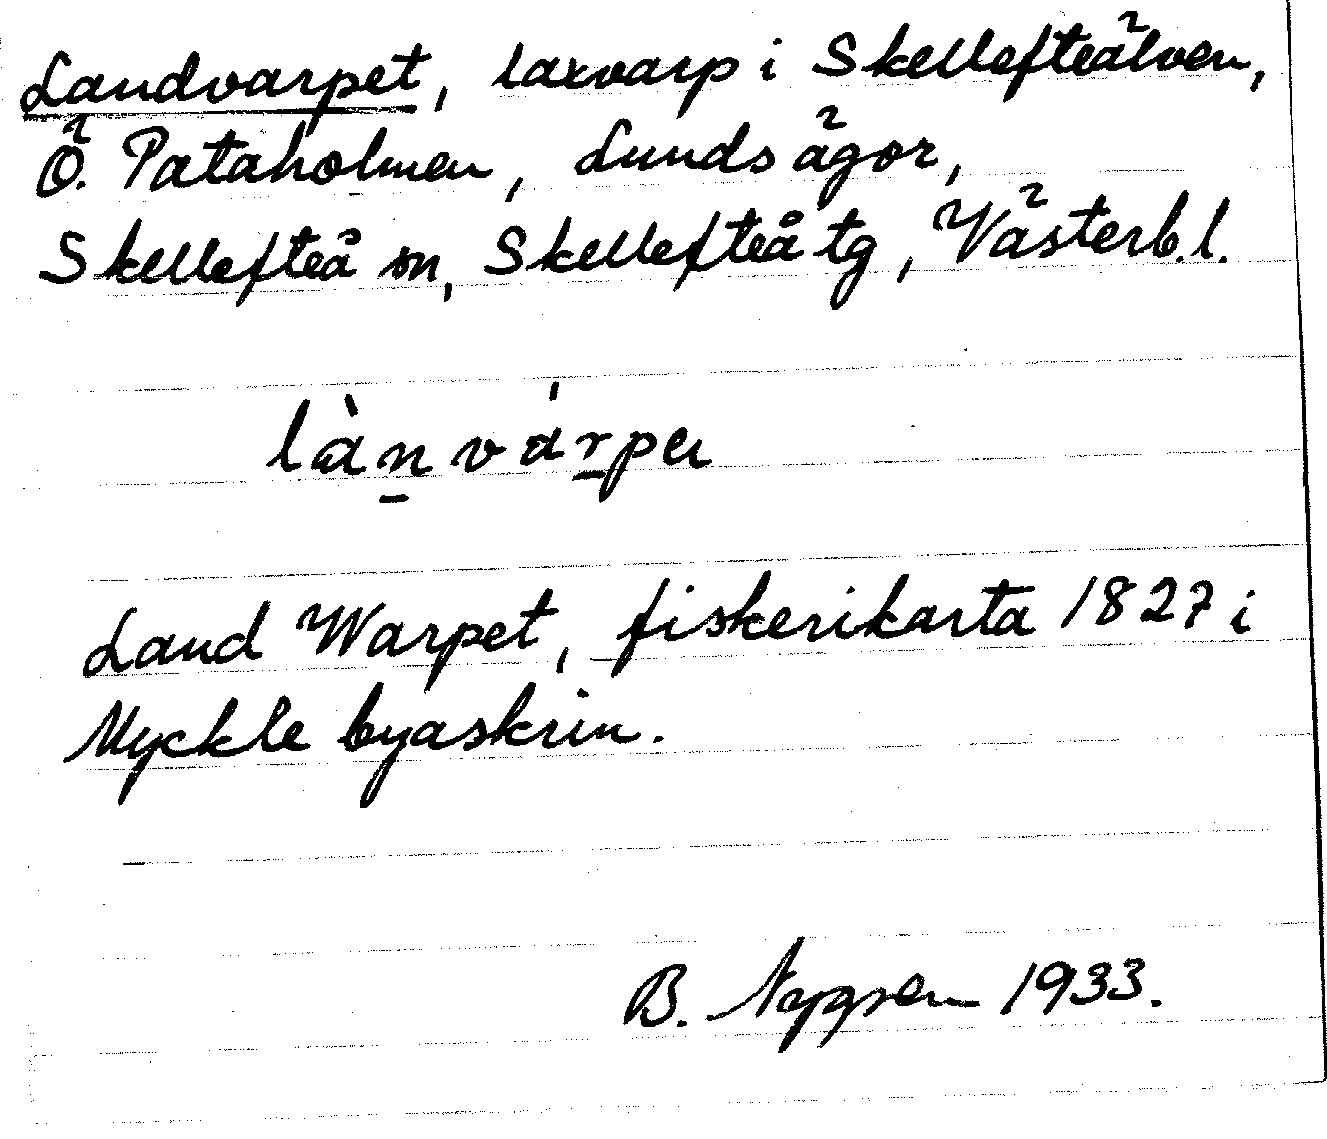 Landvarpet, laxvarp i Skellefteälven,
Ö. Pataholmen, Lunds ägor,
Skellefteå sn, Skellefteå tg, Västerb.l.
lànvárpa
Land Warpet, fiskerikarta 1827 i
Myckle byaskrin.
B. Nygren 1933.